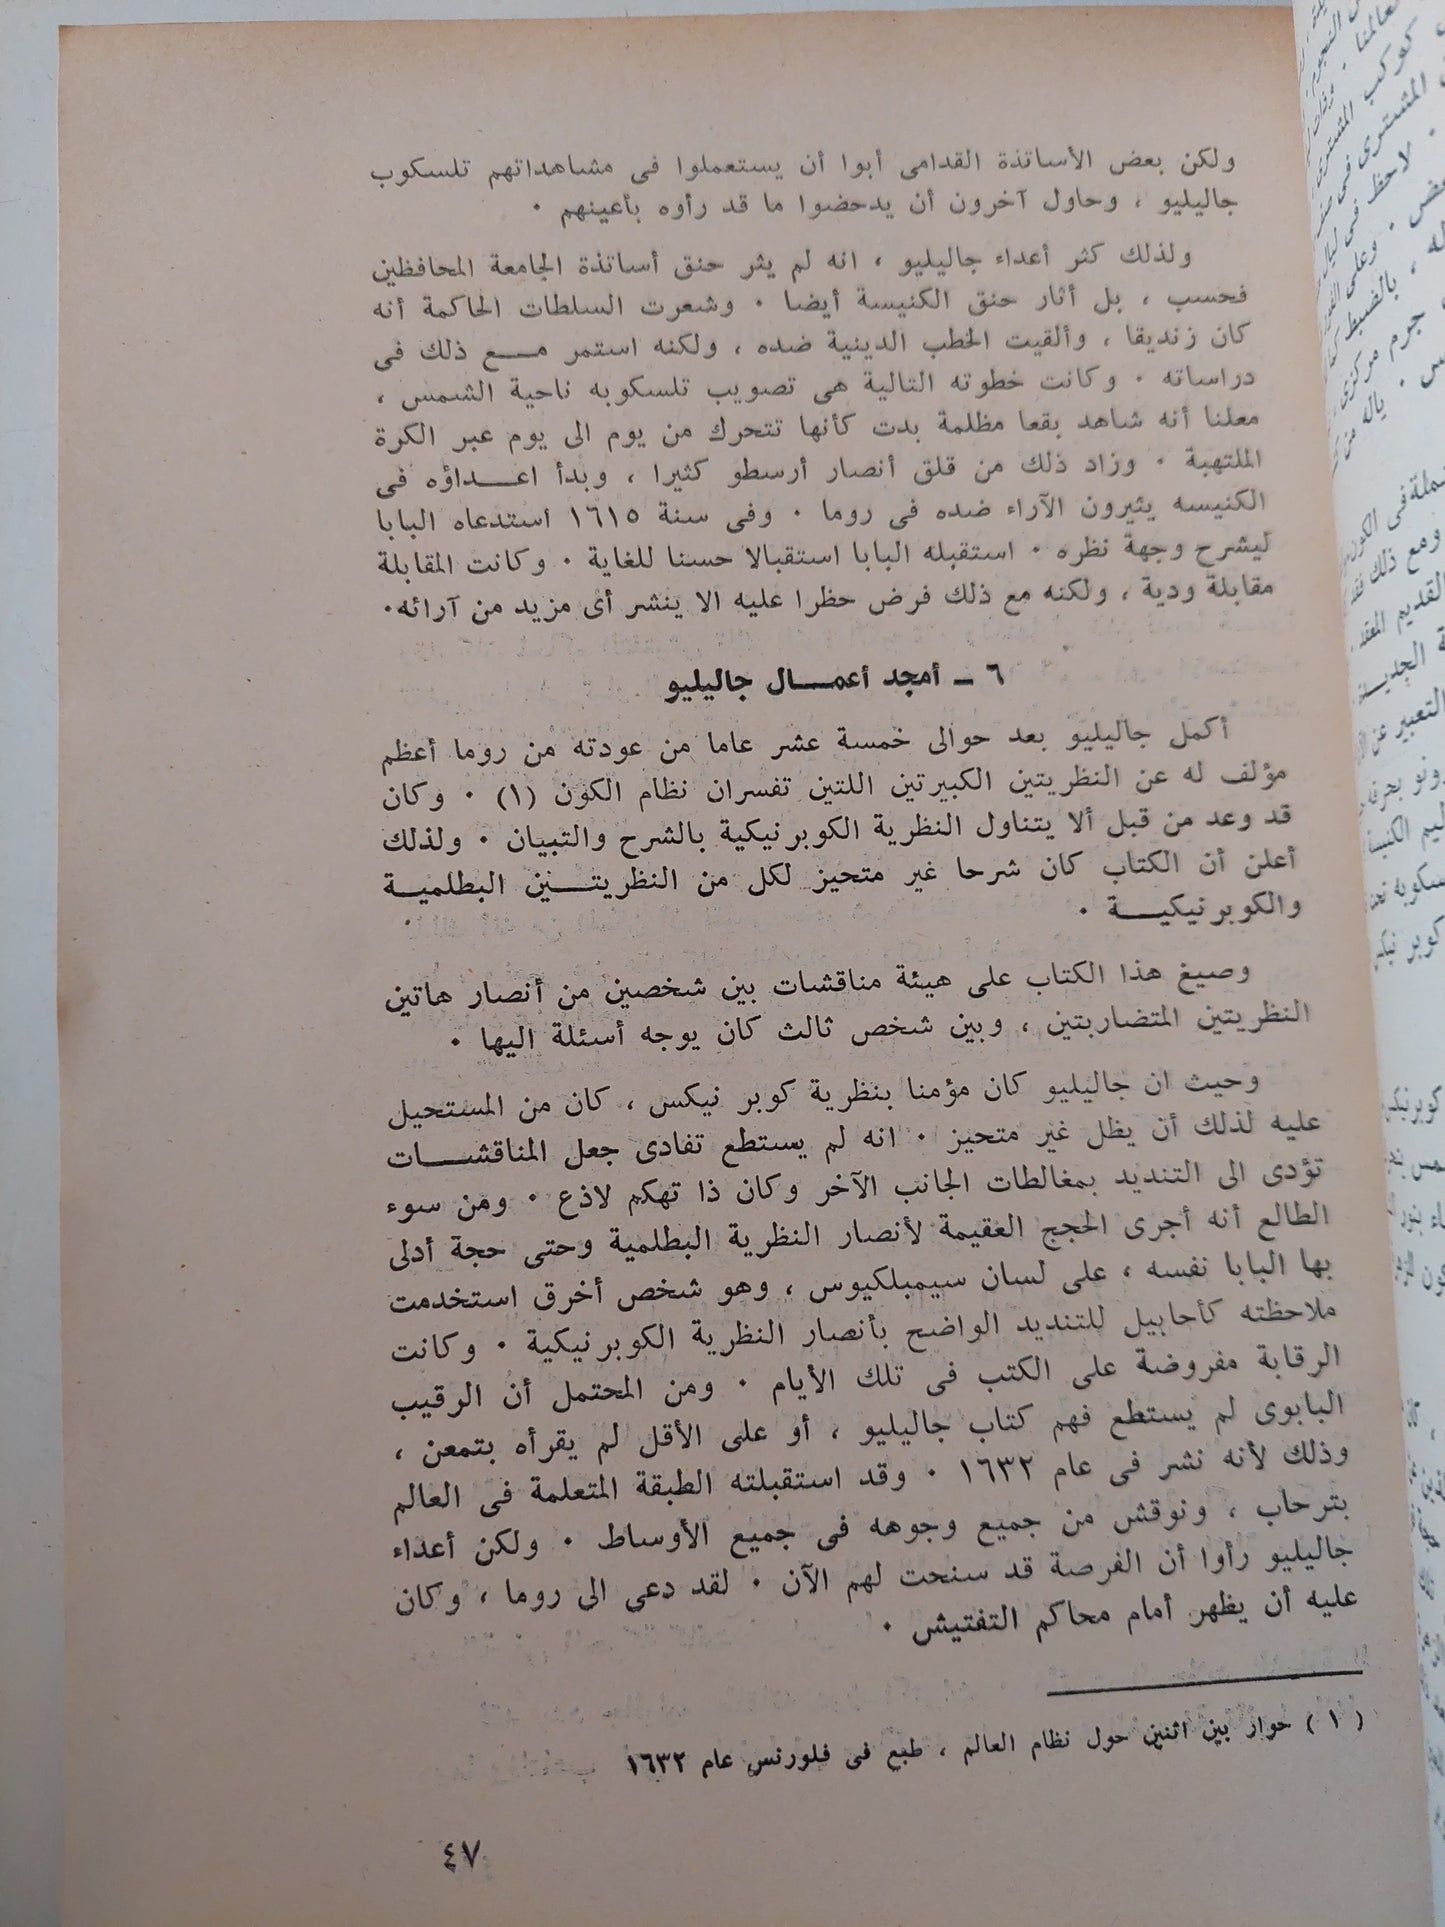 ولكن بعض الأساتذة القدامى أبوا أن يستعملوا فى مشاهداتهم تلسكوب
جاليليو ، وحاول آخرون أن يدحضوا ما قد رأوه بأعينهم ٠
ولذلك كثر أعداء جاليليو ، انه لم يثر حنق أساتذة الجامعة المحافظين
فحسب ، بل أثار حنق الكنيسة أيضا ٠ وشعرت السلطات الحاكمة أنه
كان زنديقا ، وألقيت الخطب الدينية ضده ، ولكنه استمر مـــع ذلك فى
دراساته ٠ وكانت خطوته التالية هى تصويب تلسكوبه ناحية الشمس ،
معلنا أنه شاهد بقعا مظلمة بدت كأنها تتحرك من يوم الى يوم عبر الكرة
الملتهبة ٠ وزاد ذلك من قلق أنصار أرسطو كثيرا ، وبدأ اعـــداؤه فى
الكنيسه يثيرون الآراء ضده فى روما ٠ وفى سنة ١٦١٥ استدعاه البابا
ليشرح وجهة نظره ٠ استقبله البابا استقبالا حسنا للغاية ٠ وكانت المقابلة
مقابلة ودية ، ولكنه مع ذلك فرض حظرا عليه الا ينشر أى مزيد من آرائه٠
٦ ــ أمجد أعمـــال جاليليو
أكمل جاليليو بعد حوالى خمسة عشر عاما من عودته من روما أعظم
مؤلف له عن النظريتين الكبيرتين اللتين تفسران نظام الكون (١) ٠ وكان
قد وعد من قبل ألا يتناول النظرية الكوبرنيكية بالشرح والتبيان ٠ ولذلك
أعلن أن الكتاب كان شرحا غير متحيز لكل من النظريتـــين البطلميـــة
والكوبرنيكيـــة ٠
وصيغ هذا الكتاب على هيئة مناقشات بين شخصين من أنصار هاتين
النظريتين المتضاربتين ، وبين شخص ثالث كان يوجه أسئلة اليها ٠
وحيث ان جاليليو كان مؤمنا بنظرية كوبر نيكس ، كان من المستحيل
عليه لذلك أن يظل غير متحيز ٠ انه لم يستطع تفادى جعل المناقشـــات
تؤدى الى التنديد بمغالطات الجانب الآخر وكان ذا تهكم لاذع ٠ ومن سوء
الطالع أنه أجرى الحجج العقيمة لأنصار النظرية البطلمية وحتى حجة أدلى
بها البابا نفسه ، على لسان سيمبلكيوس ، وهو شخص أخرق استخدمت
ملاحظته كأحابيل للتنديد الواضح بأنصار النظرية الكوبرنيكية ٠ وكانت
الرقابة مفروضة على الكتب فى تلك الأيام ٠ ومن المحتمل أن الرقيب
البابوى لم يستطع فهم كتاب جاليليو ، أو على الأقل لم يقرأه بتمعن ،
وذلك لأنه نشر فى عام ١٦٣٢ ٠ وقد استقبلته الطبقة المتعلمة فى العالم
بترحاب ، ونوقش من جميع وجوهه فى جميع الأوساط ٠ ولكن أعداء
جاليليو رأوا أن الفرصة قد سنحت لهم الآن ٠ لقد دعى الى روما ، وكان
عليه أن يظهر أمام محاكم التفتيش ٠
( ١ ) حوار بين اثنين حول نظام العالم ، طبع فى فلورنس عام ١٦٣٢
٤٧